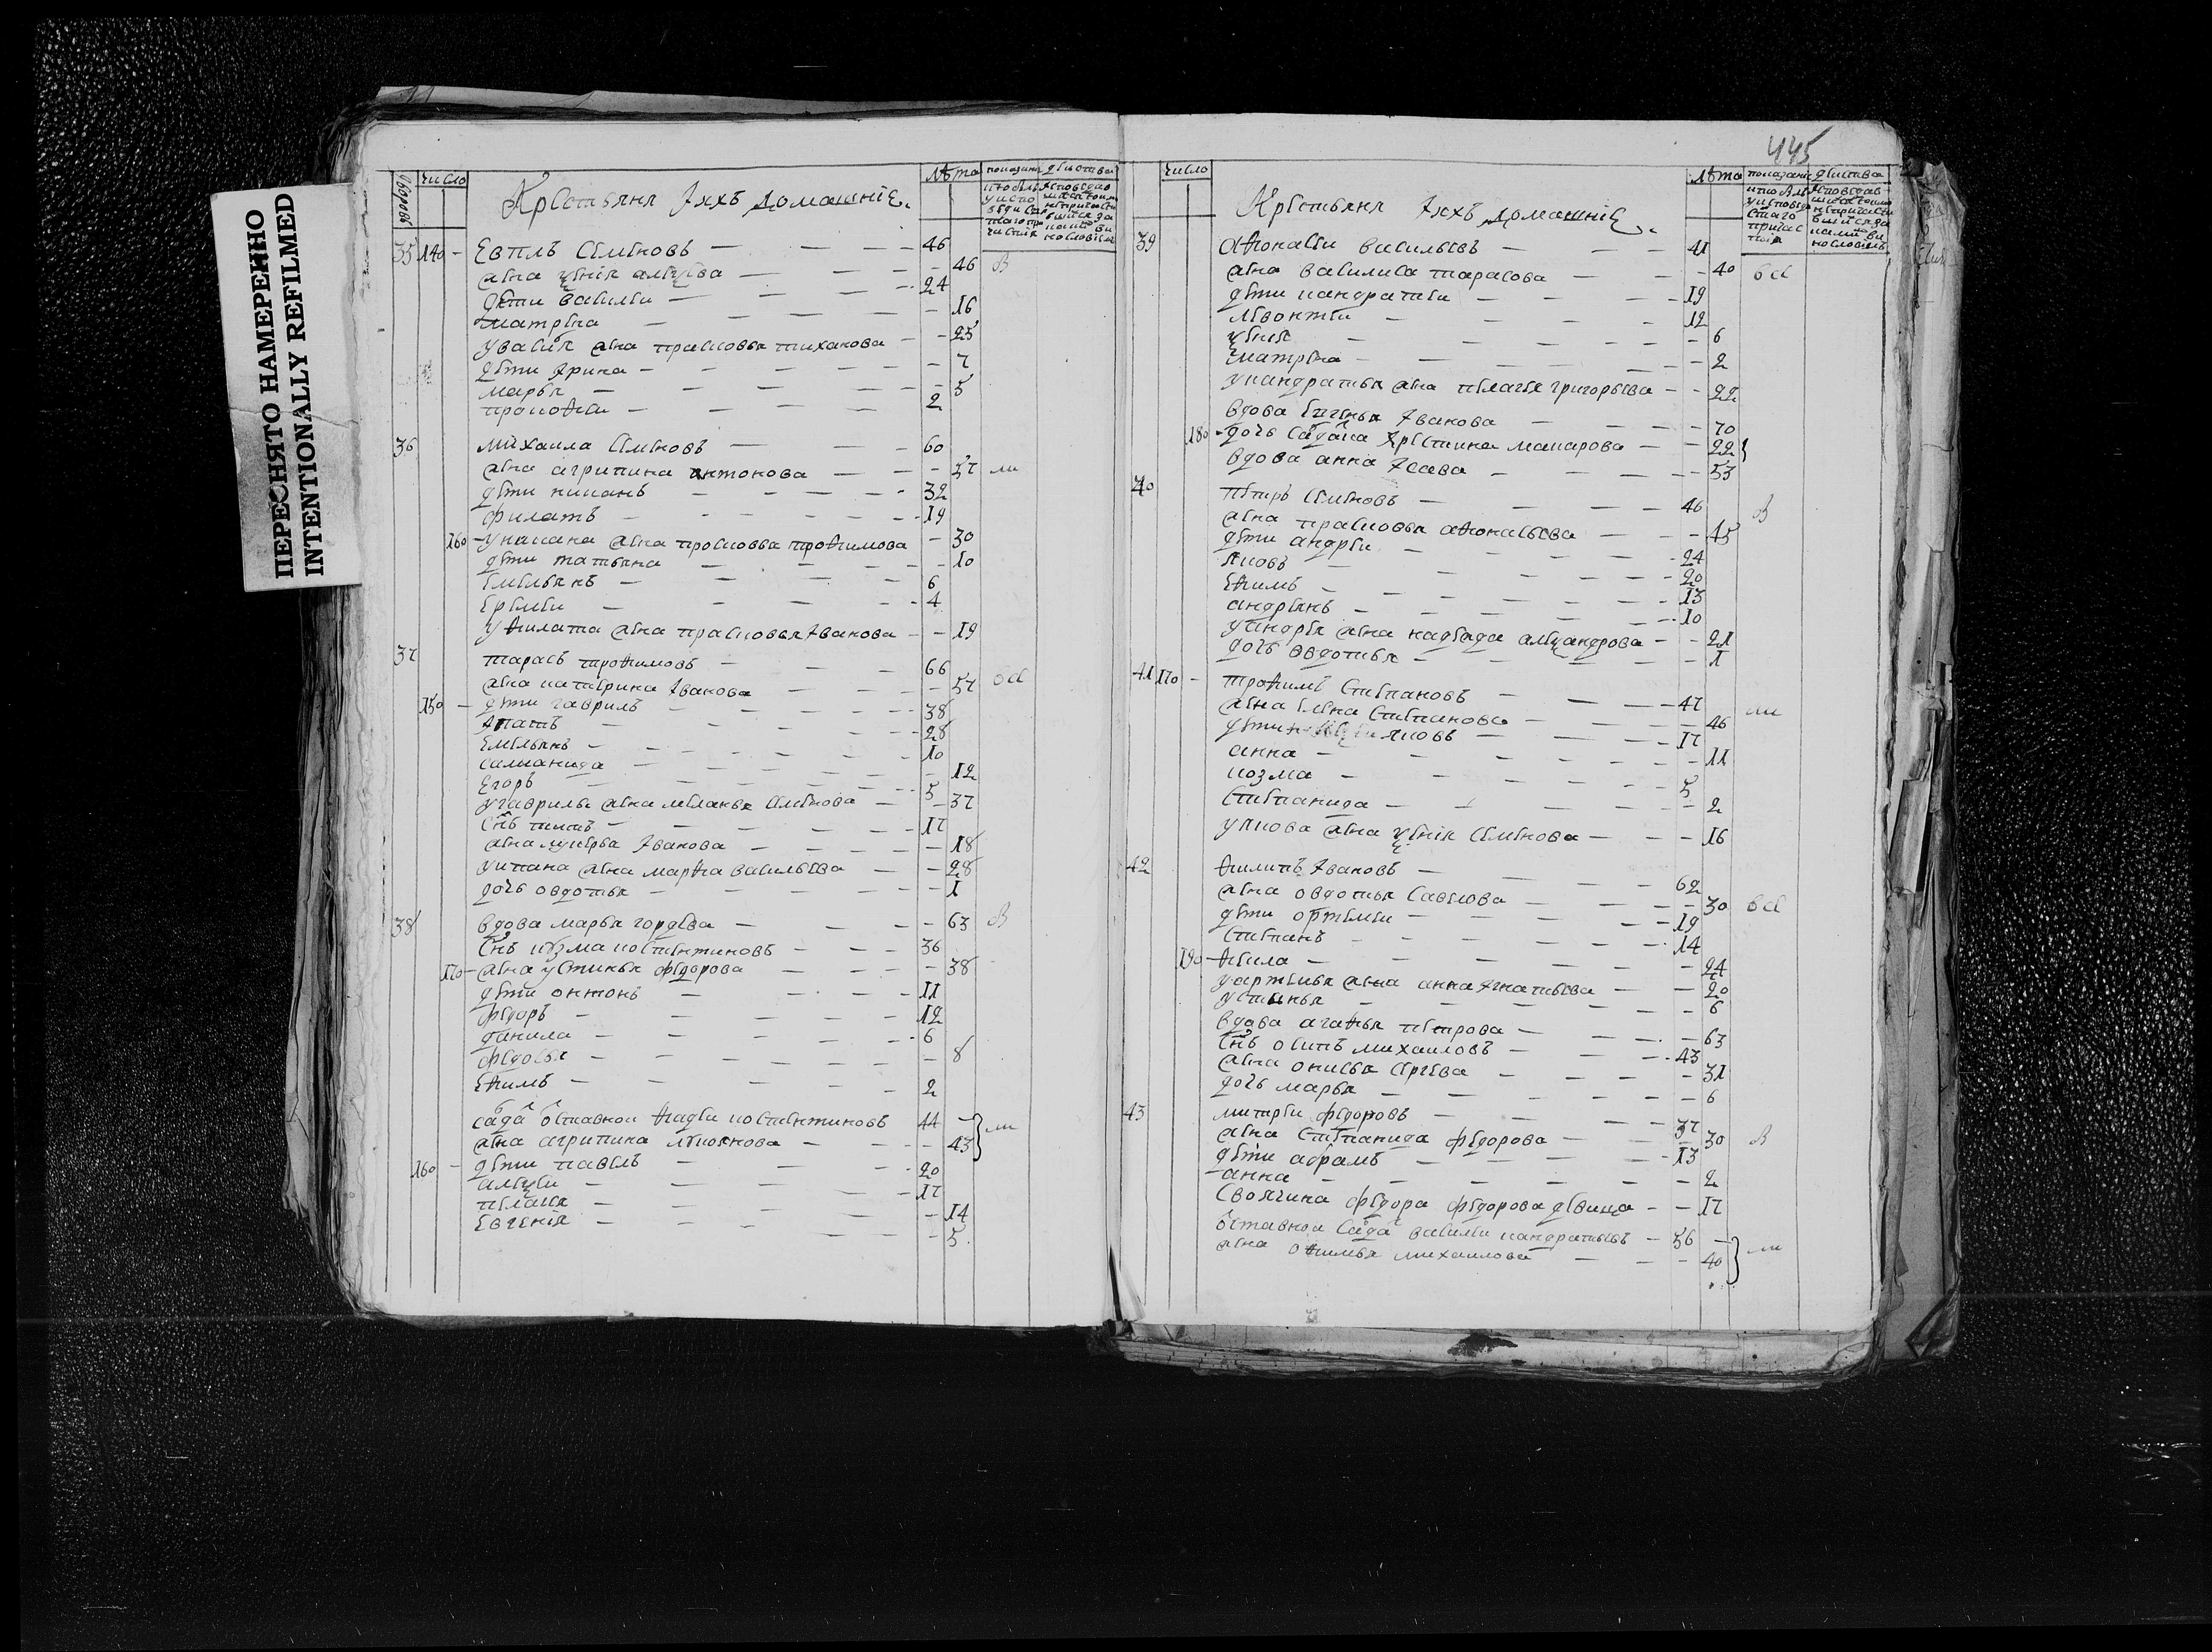 ПЕРЕСНЯТО НАМЕРЕННО
INTENTIONALLY REFILMED
число
лѣта
показание действа
Крестьяня ихъ домашние
35 140 - Евпль Семеновъ 46
жена Ксения алексеева 46 В
дети василеи 24
матрена 16
у василя жена прасковья тиханова 25
дети ирина 7
марья 5
прокофеи 2
36 михаила Семеновъ 60
жена агрипина антонова 57 ли
дети кипанъ 32
филатъ 19
160 - жена просковья трофимова 30
дети татьяна 10
емельянъ 6
еремеи 4
у филата жена прасковья иванова 19
37 тарасъ трофимовъ 66
жена катерина иванова 57 всѣ
150 - дети гаврилъ 38
ипатъ 28
емельянъ 10
саламанида 12
егоръ 5
у гаврилы жена меланья семенова 37
снъ титъ 17
жена лукерья иванова 18
у ипата жена марфа васильева 28
дочь овдотья 1
38 вдова марья гордева 63 В
снъ козма костентиновъ 36
170 - жена устинья федорова 38
дети онтонъ 11
федоръ 12
данила 6
федосья 8
ефимъ 2
сада оставнои фадеи костентиновъ 44
жена агрипина лукоянова 43 ли
160 - дети павелъ 20
алексеи 17
пелагея 14
евгения 5
445
число
лѣта
показание действа
Крестьяня ихъ домашние
39 афонасеи васильевъ 41
жена василиса тарасова 40 всѣ
дети кандратеи 19
левонтеи 12
Ксения 6
матрена 2
у кандратья жена пелагея григорьева 22
вдова евгенья иванова 70
180 - дочь садацка христина макарова 22
вдова анна исаева 53
40 петръ Семеновъ 46 В
жена прасковья афонасьева 45
дети андреи 24
яковъ 20
ефимъ 13
андреянъ 10
у андрея жена надежда александрова 21
дочь овдотья 1
41 170 - трофимъ степановъ 47 ли
жена елена степанова 46
дети яковъ 17
анна 11
козма 5
степанида 2
у якова жена Ксения Семенова 16
42 филипъ ивановъ 62
жена овдотья савелова 30 всѣ
дети ортемеи 19
степанъ 14
190 - фекла 24
у артемья жена анна игнатьева 20
устинья 6
вдова агафья петрова 63
снъ осипъ михаиловъ 43
жена онисья сергева 31
дочь марья 6
43 митреи федоровъ 37
жена степанида федорова 30 В
дети абрамъ 13
анна 2
своячина федора федорова девица 17
оставнои сада василеи кандратьевъ 56
жена офимья михаилова 40 ли